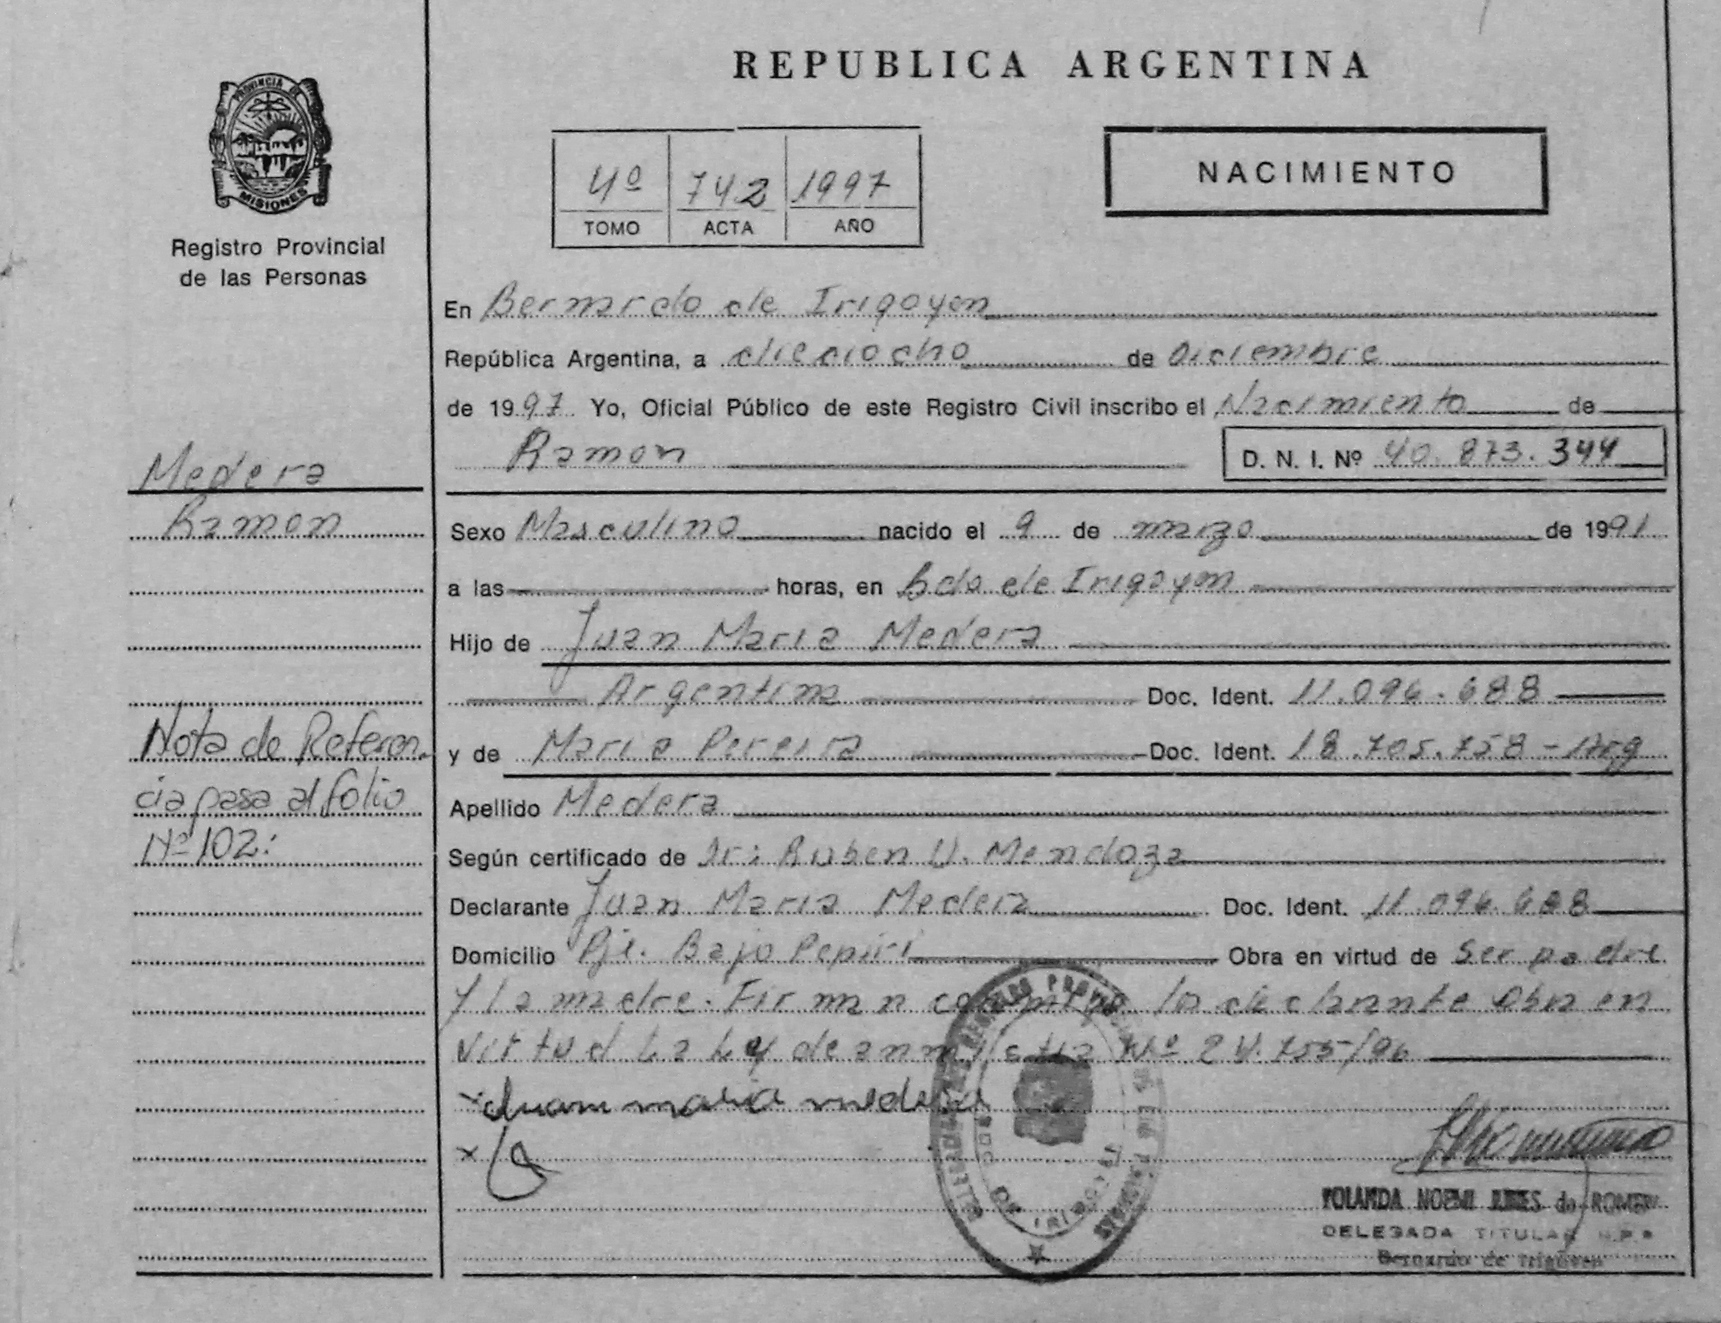 REPUBLICA ARGENTINA
PROVINCIA DE
MISIONES
Registro Provincial
de las Personas
4º 742 1997
TOMO ACTA AÑO
NACIMIENTO
En Bernardo de Irigoyen
República Argentina, a dieciocho de Diciembre
de 1997 Yo, Oficial Público de este Registro Civil inscribo el Nacimiento de
Ramon D. N. I. Nº 40.873.344
Medera
Ramon
Sexo Masculino nacido el 9 de marzo de 1991
a las horas, en Bdo de Irigoyen
Hijo de Juan Maria Medera
Argentina Doc. Ident. 11.096.688
Nota de Referen
cia pasa al folio
Nº 102:
y de Maria Pereira Doc. Ident. 18.705.758 - Arg
Apellido Medera
Según certificado de Dr: Ruben V. Mendoza
Declarante Juan Maria Medera Doc. Ident. 11.096.688
Domicilio Pje. Bajo Pepiri Obra en virtud de Ser padre
y la madre. Firman conmigo la declarante Obra en
virtud La Ley de annistia Nº 24.755/96
x Juan maria medera
x
YOLANDA NOEMI de ROMERO
DELEGADA TITULAR R.P.P
Bernardo de Irigoyen